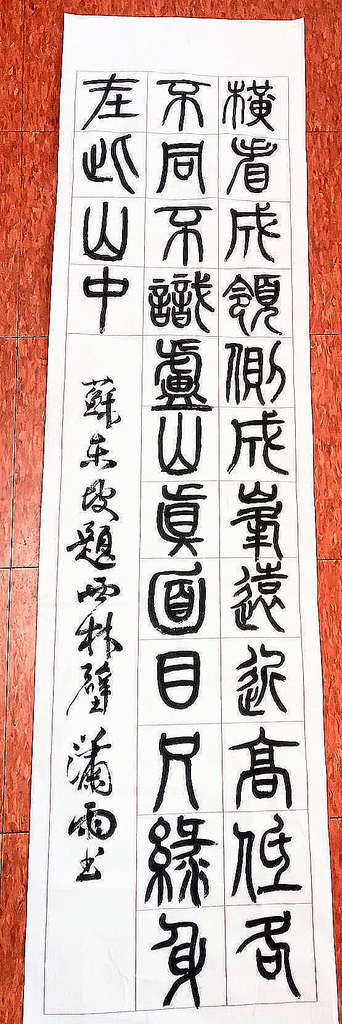 橫看成領側成峯遠近高低各
不同不識盧山眞面目只緣身
在此山中
蘇东坡題西林壁 瀟雨书